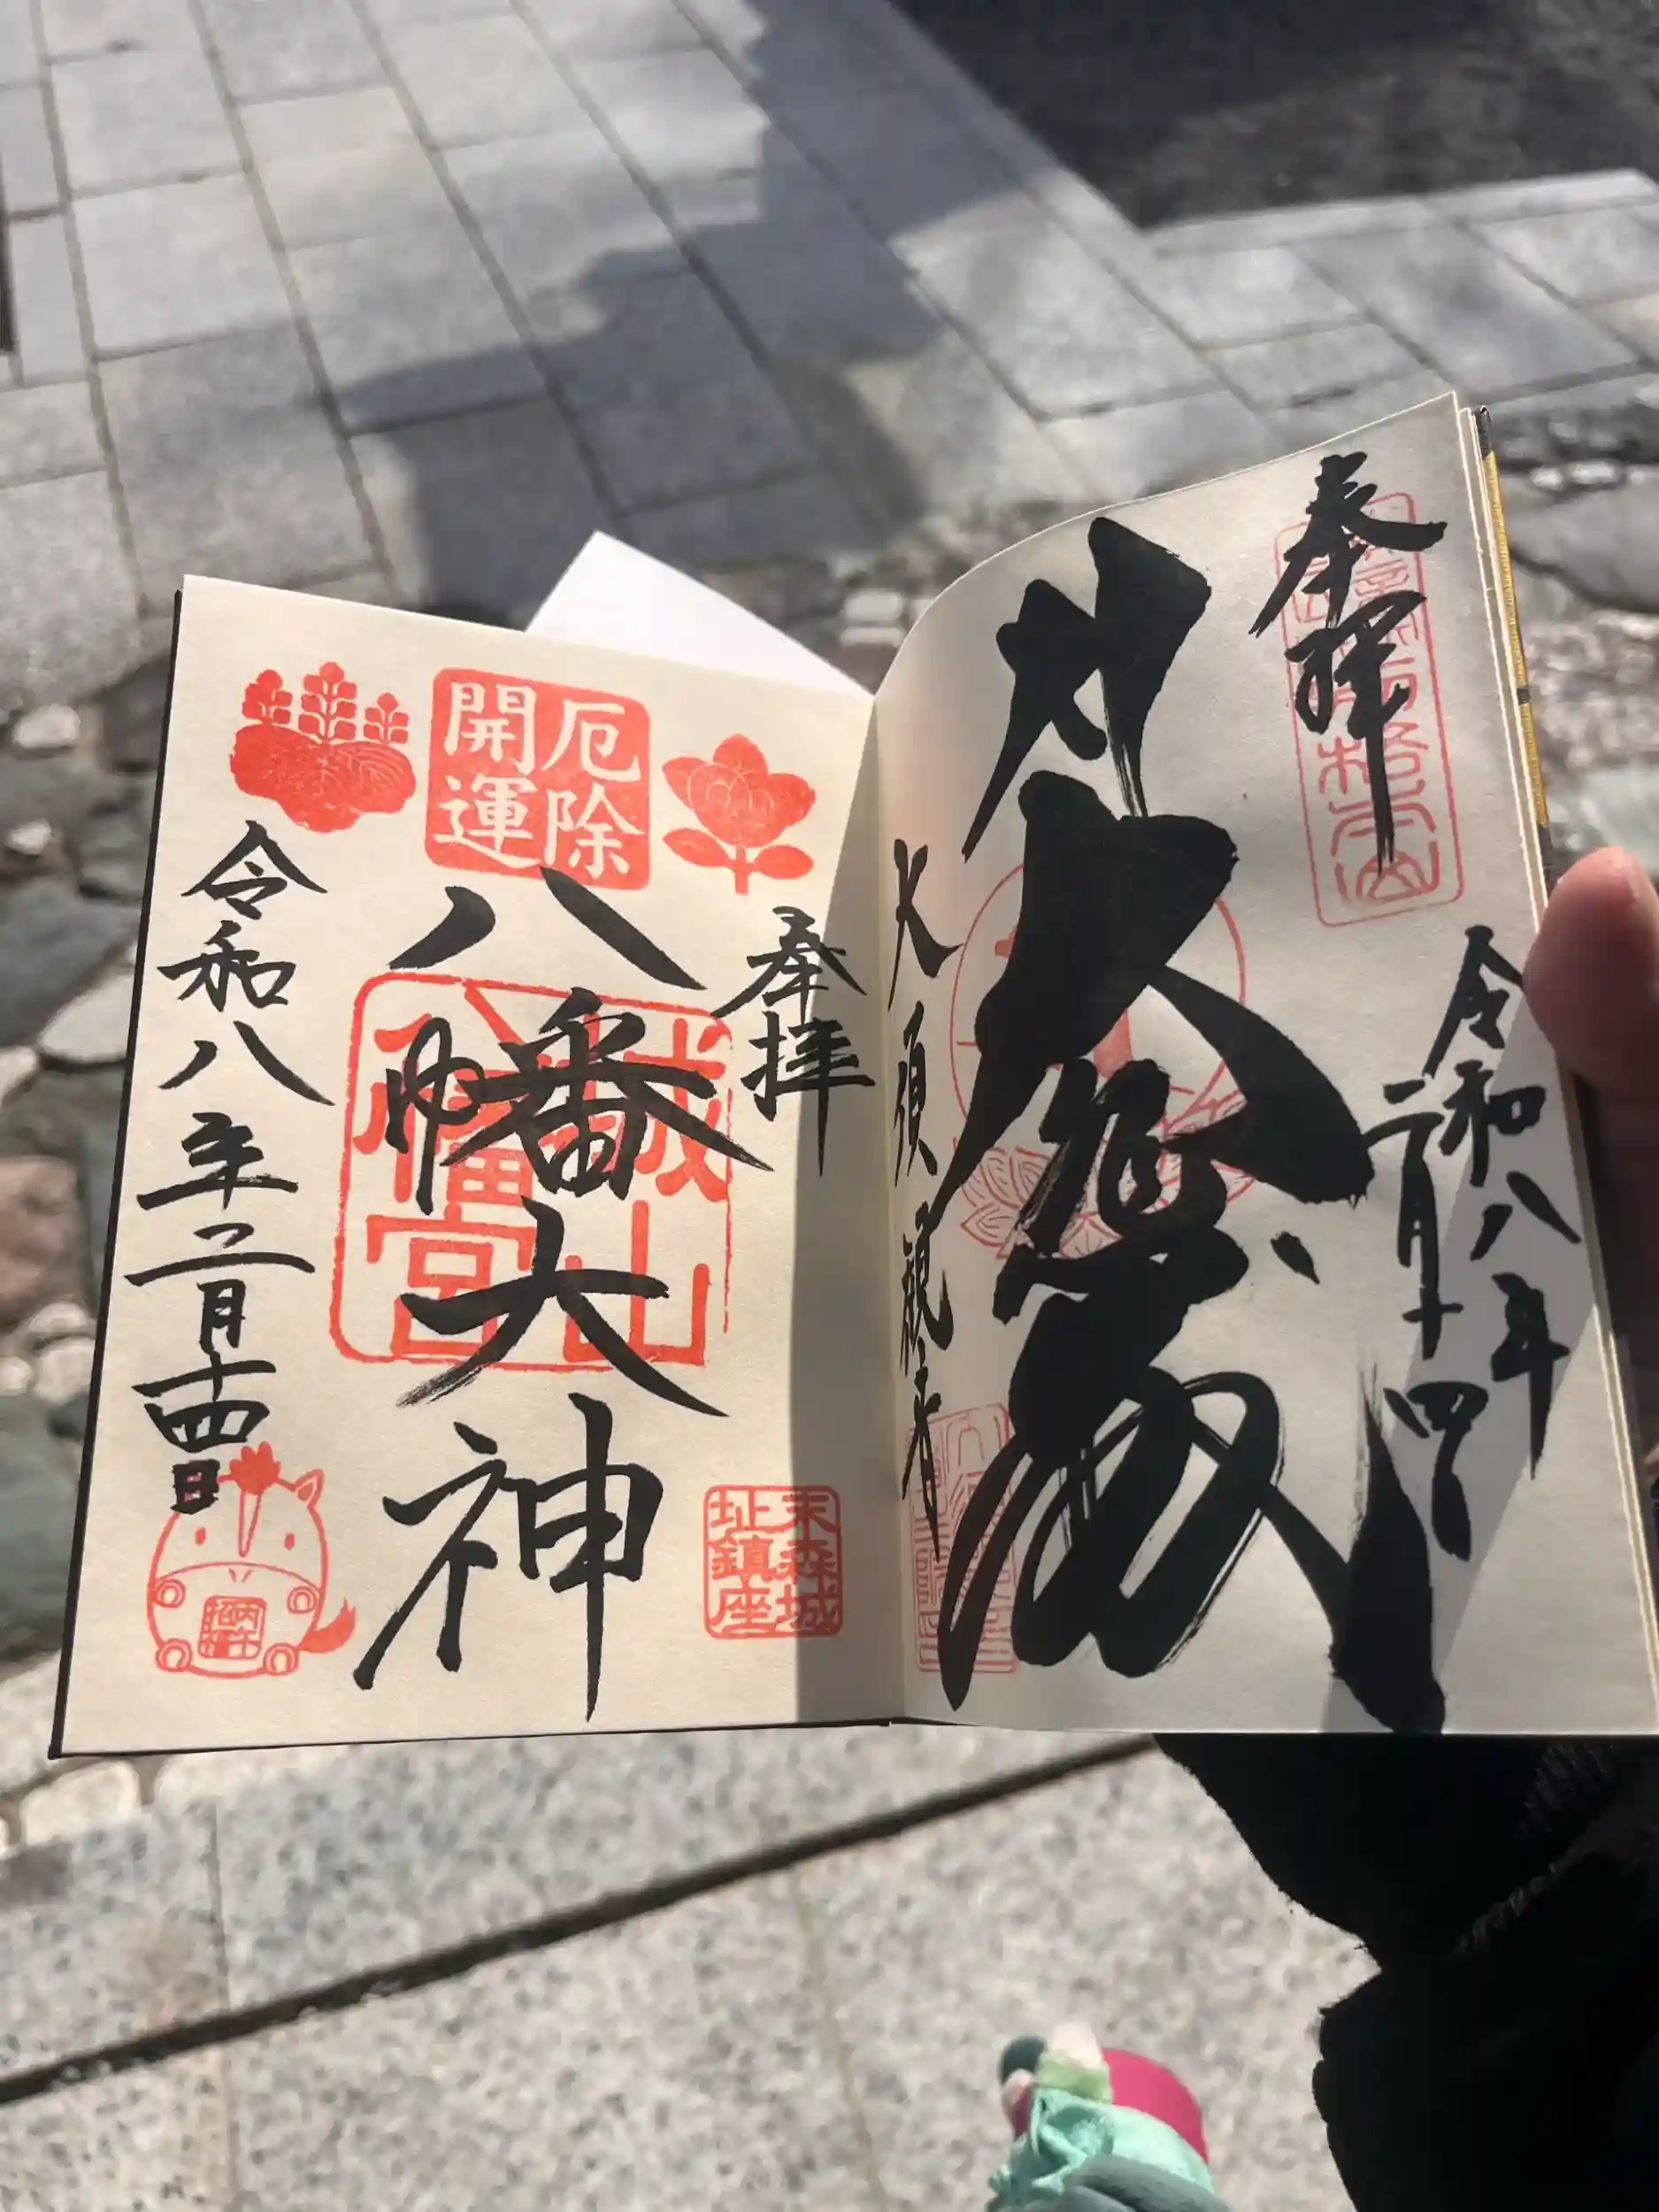 奉拝
令和八年
二月十四
大悲殿
大須観音
奉拝
厄除
開運
八幡大神
城山
八幡宮
末森城
址鎮座
令和八年二月十四日